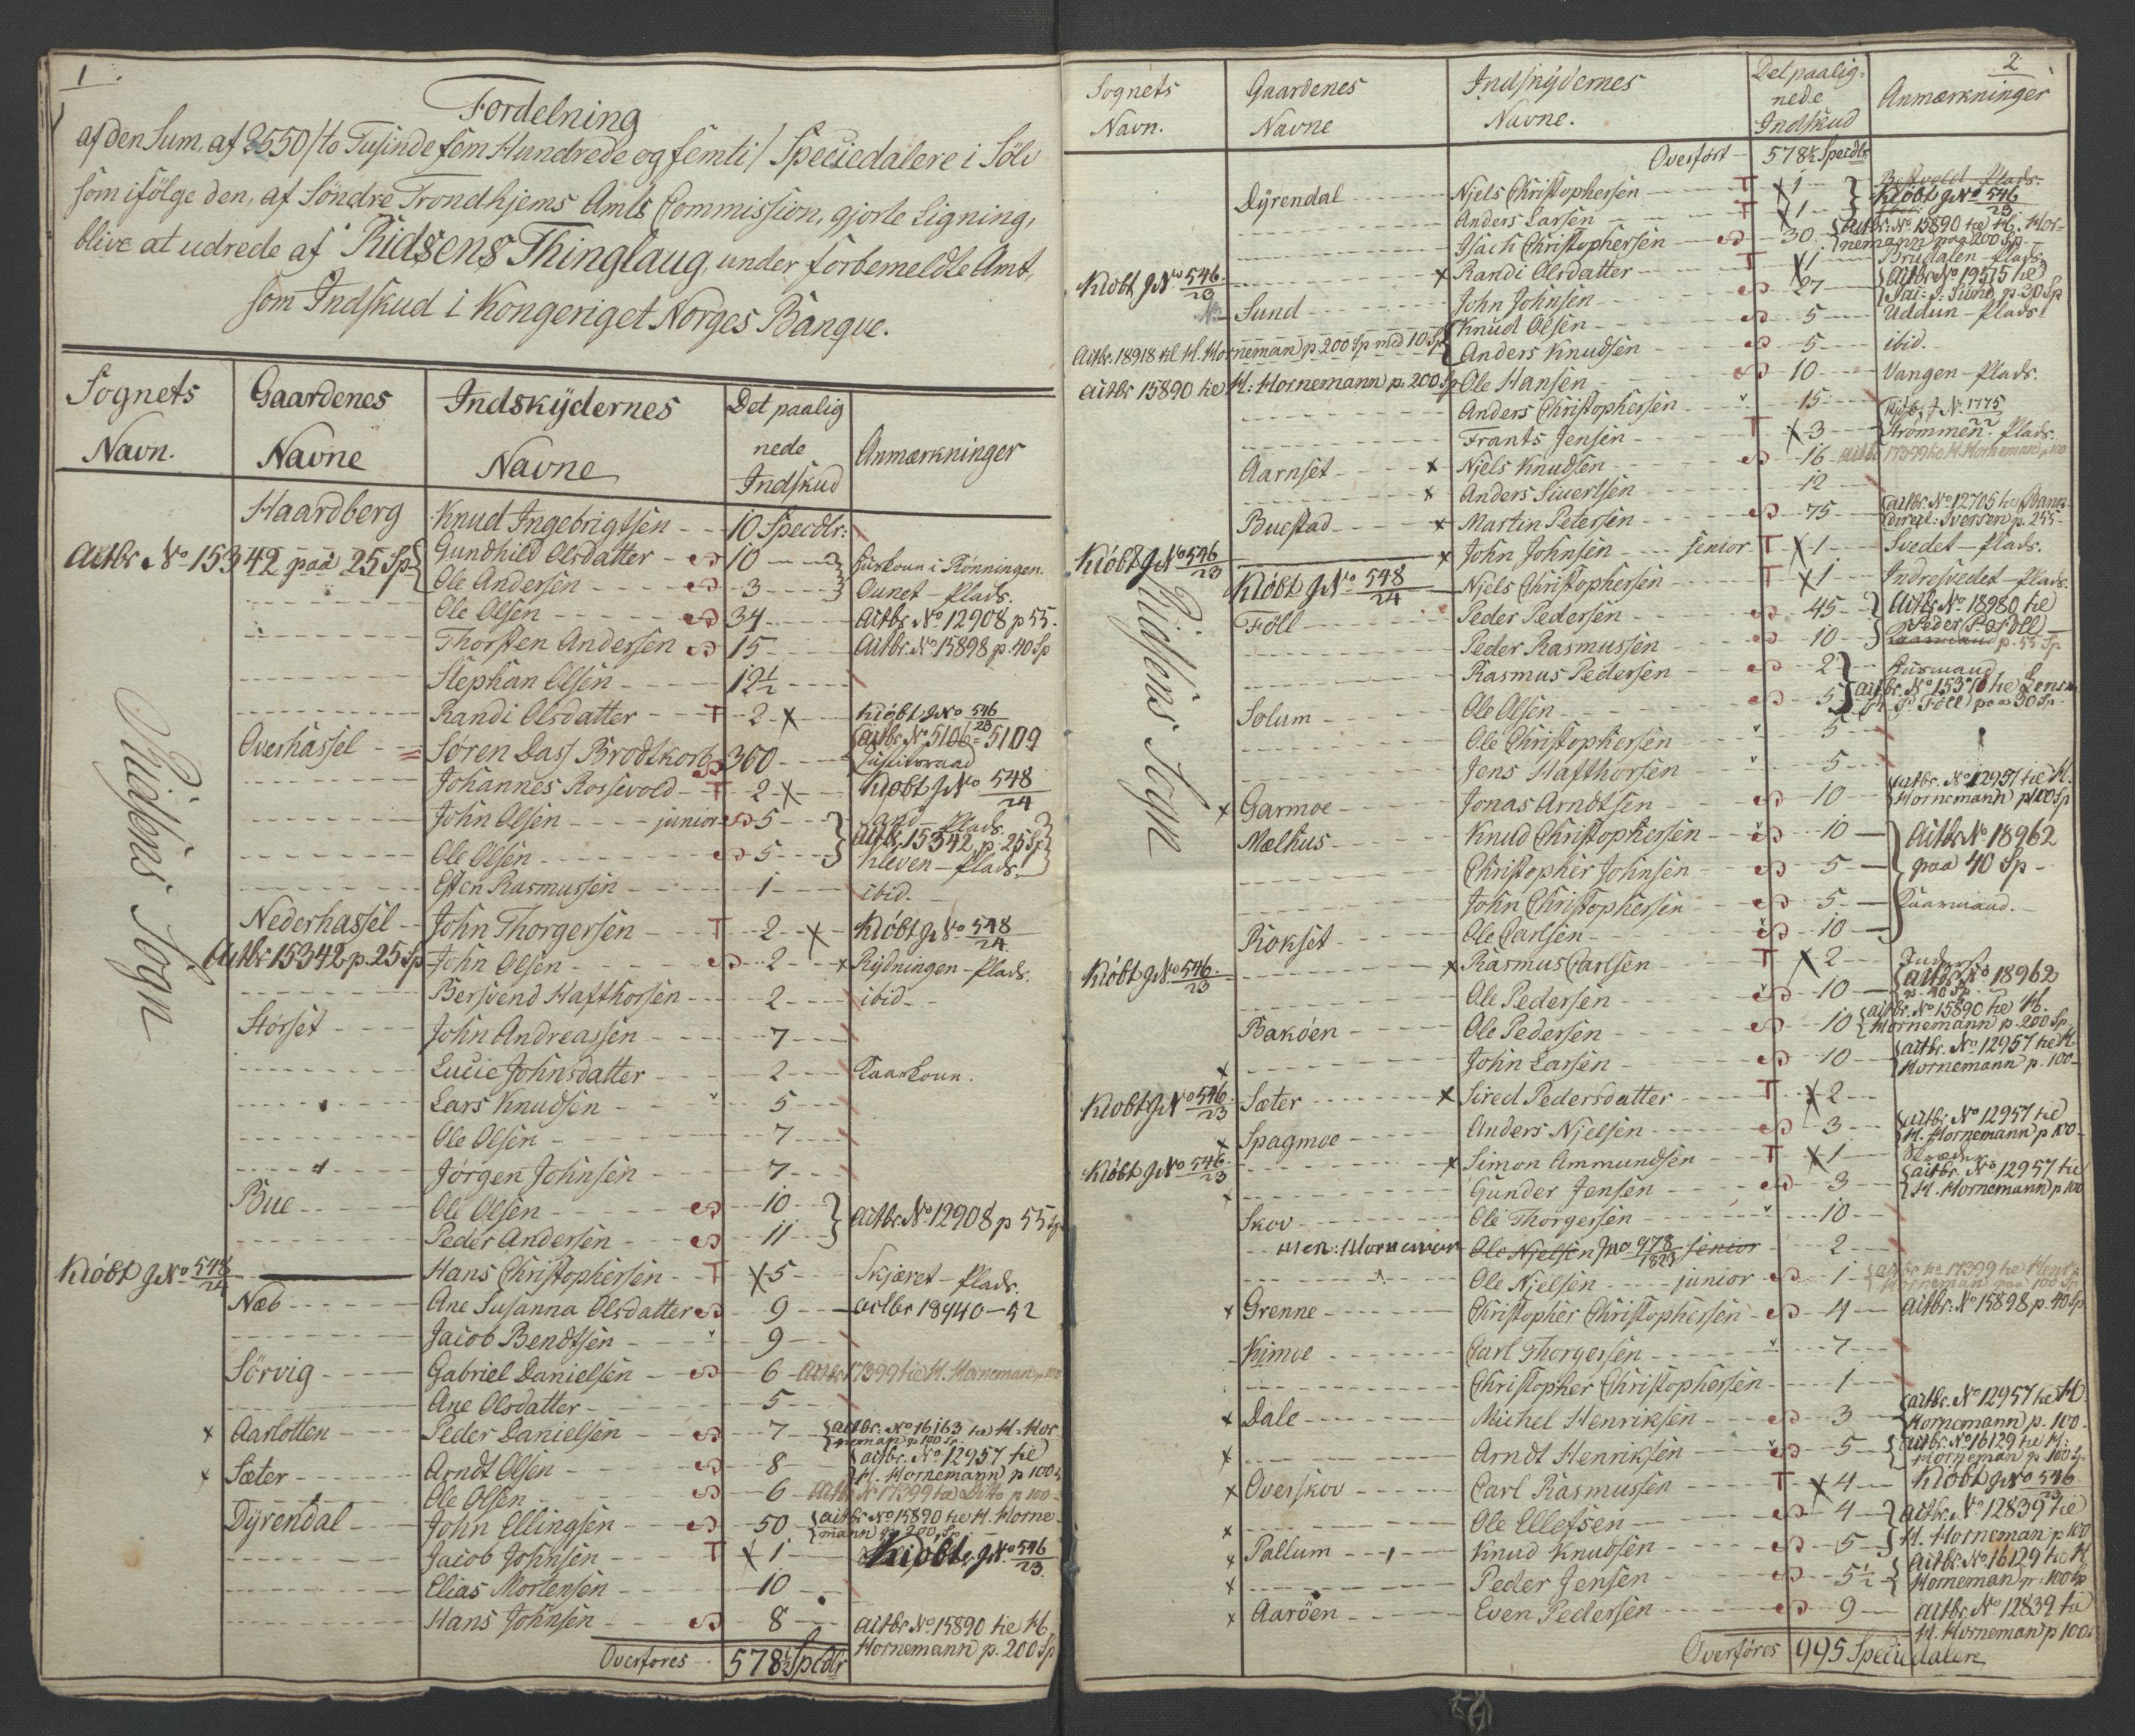 1
Fordelning
af den Sum, af 2550 /to Tusinde fem Hundrede og femti/ Speciedalere i Sölv
som ifölge den, af Söndre Trondhjems Amts Commission, gjorte Ligning,
blive at udrede af Ridsens Thinglaug, under forbemeldte Amt,
som Indskud i Kongeriget Norges Banque.
Sognets Navn. Gaardenes Navne Indskydernes Navne Det paalignede Indskud Anmærkninger
Ridsens Sogn
Haardberg Knud Ingebrigtsen 10 Specdlr:
Actbr No 15342 paa 25 Sp Gundhild Olsdatter 10 Huskone i Rönningen.
Ole Andersen 3 Aunet - Plads.
Ole Olsen 34 Actbr No 12908 p 55.
Thorsten Andersen 15 Actbr. No 15898 p. 40 Sp
Stephan Olsen 12½
Randi Olsdatter T 2 x Kiöbt J No 546/23
Overhassel Sören Dass Brodtkorb 360 actbr No 5106 = 5109 Justitsraad
Johannes Rossevold T 2 x Kiöbt J No 548/24
John Olsen junior 5 Sand - Plads. Actbr. 15342 p. 25 Sp
Ole Olsen 5 Kleven - Plads.
Esten Rasmussen 1 ibid.
Nederhassel John Thorgersen T 2 x Kiöbt J No 548/24
Actbr 15342 p. 25 Sp John Olsen 2 x Rydningen - Plads.
Bersvend Hafthorsen 2 ibid.
Störset John Andreassen 7
Lucie Johnsdatter 2 Kaarkone.
Lars Knudsen 5
Ole Olsen 7
Jörgen Johnsen 7
Bue Ole Olsen 10 actbr. No 12908 p 55 Sp
Peder Andersen 11
Kiöbt J No 548/24 Hans Christophersen T x 5 Skjæret - Plads.
Næb Ane Susanna Olsdatter 9 actbr 18940 - 52
Jacob Bendtsen 9
Sörvig Gabriel Danielsen 6 Actbr 17399 til H. Horneman p 100
Ane Olsdatter 5
x Aarlotten Peder Danielsen 7 actbr. No 16163 til H. Horneman p 100 Sp.
x Sæter Arndt Olsen 8 actbr. No 12957 til H. Hornemann p 100
Ole Olsen 6 Actbr No 17399 til Ditto p 100
Dyrendal John Ellingsen 50 actbr No 15890 til H. Hornemann p. 200 Sp
Jacob Johnsen T x 1 Kiöbt J. No 546/23.
Elias Mortensen 10
Hans Johnsen 8 actbr. No 15890 til H. Hornemann p. 200 Sp
Overföres 578½ Spcdlr
2
Sognets Navn. Gaardenes Navne Indskydernes Navne. Det paalignede Indskud Anmærkninger
Ridsens Sogn
Overfört 578½ Specdlr.
Dyrendal Niels Christophersen T x 1 Plads. Kiöbt J No 546/23
Anders Larsen T x 1
Isach Christophersen 30 actbr. No 15890 til H. Hornemann paa 200 Sp.
Kiöbt J No 546/23 x Randi Olsdatter T x 1 Brudalen - Plads.
Sund John Johnsen 27 actbr No 19515 til S. Sund p. 30 Sp
Knud Olsen 5 Uddun - Plads
Actbr. 18918 til H. Horneman p. 200 Sp med 10 Sp Anders Knudsen 5 ibid.
actbr 15890 til H: Hornemann p. 200 Sp Ole Hansen 10 Vangen - Plads.
Anders Christophersen 15
Frants Jensen T x 3 Kiöbt J N. 1775/22 Strömmen. Plads.
Aarnset x Niels Knudsen 16 actbr 17399 til H. Horneman p 100
x Anders Siuertsen 12
Buestad x Martin Petersen 75 actbr. No 12705 til Banc direct: Iversen p. 255
Kiöbt J No 546/23 x John Johnsen senior T x 1 Svedet - Plads.
Kiöbt J No 548/24 Niels Christophersen T x 1 Indresvedet - Plads.
Föll Peder Pedersen 45 Actbr No 18980 til Peder P. Föll p. 55 Sp
Peder Rasmussen 10
Rasmus Pedersen 2 Huusmand
Solum Ole Olsen 5 actbr. No 15370 til Lensm P. Föll paa 30 Sp
Ole Christophersen 5
Jens Hafthorsen 5
x Garmoe Jonas Arndtsen 10 actbr. No 12957 til H. Hornemann p 100 Sp
Mælhus Knud Christophersen 10 Actbr No 18962
Christopher Johnsen 5 paa 40 Sp
John Christophersen 5 Kaarmand.
Rokset Ole Carlsen 10
Kiöbt J No 546/23 x Rasmus Carlsen T x 2 Inderst
Ole Pedersen 10 actbr No 18962 p. 40 Sp.
Baköen Ole Pedersen 10 actbr. No 15890 til H. Hornemann p. 200 Sp.
x John Larsen 10 actbr. No 12957 til H. Hornemann p. 100
Kiöbt J No 546/23 Sæter x Sired Pedersdatter T x 2
x Spagmoe Anders Njelsen 3 actbr. No 12957 til H. Hornemann p 100
Kiöbt J No 546/23 x Simon Ammundsen T x 1
x Gunder Jensen 3 actbr. No 12957 til H. Hornemann p 100
Skov Ole Thorgersen 10
Hen: Horneman Ole Njelsen Jno 978/1823 senior 2
Ole Njelsen junior 1 actbr No 17399 til Henr Horneman paa 100 Sp
x Grenne Christopher Christophersen 4 actbr: No 15898 p. 40 Sp
Kimoe Carl Thorgersen 7
Christopher Christophersen 1
x Dale Michel Henriksen 3 actbr. No 12957 til H Hornemann p. 100.
x Arndt Henriksen 5 actbr. No 16129 til H. Horneman p 100 Sp.
x Overskov Carl Rasmussen T x 4 Kiöbt J No 546/23
x Ole Ellefsen 4 actbr. No 12839 til H. Horneman p 100
x Pallum Knud Knudsen 5
x Peder Jensen 5½ actbr. No 16129 til H Horneman p. 100 Sp
x Aaröen Even Pedersen 9 actbr. No 12839 til H. Horneman p 100
Overföres 995 Speciedalere